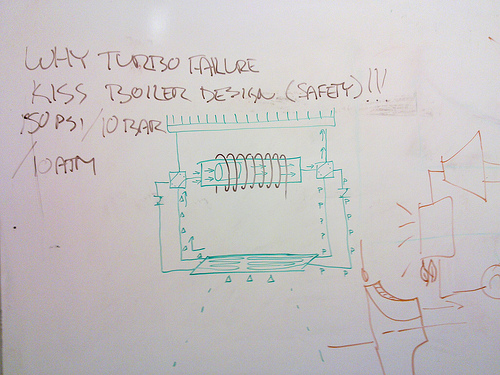 WHY TURBO FAILURE
KISS BOILER DESIGN (SAFETY)!!!
150 PSI / 10 BAR
/ 10 ATM